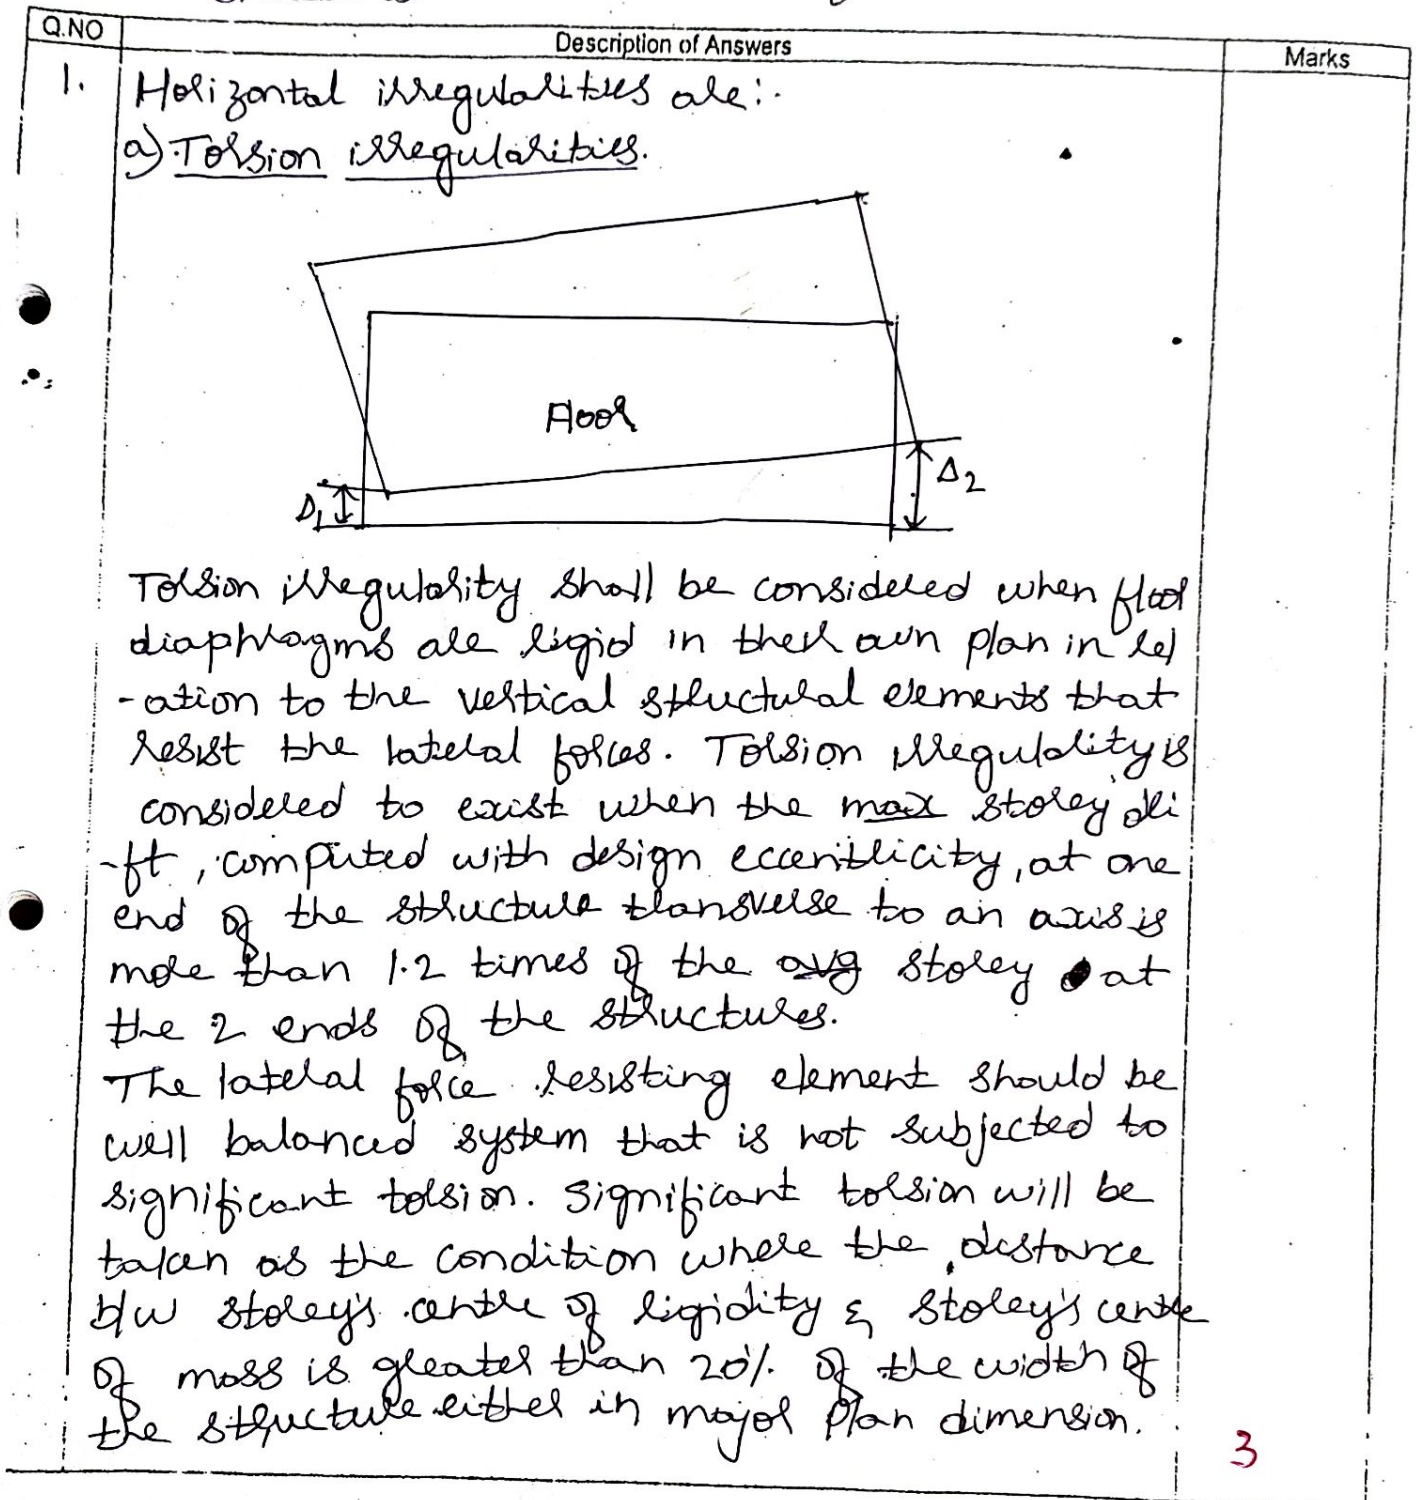 Q.NO
Description of Answers
Marks
1.
Horizontal irregularities are:-
a) Torsion irregularities.
Floor
Δ1
Δ2
Torsion irregularity shall be considered when floor
diaphragms are rigid in their own plan in rel
-ation to the vertical structural elements that
resist the lateral forces. Torsion irregularity is
considered to exist when the max storey dri
-ft, computed with design eccentricity, at one
end of the structure transverse to an axis is
more than 1.2 times of the avg storey at
the 2 ends of the structures.
The lateral force resisting element should be
well balanced system that is not subjected to
significant torsion. Significant torsion will be
taken as the condition where the distance
b/w storey's centre of rigidity & storey's centre
of mass is greater than 20% of the width of
the structure either in major plan dimension.
3